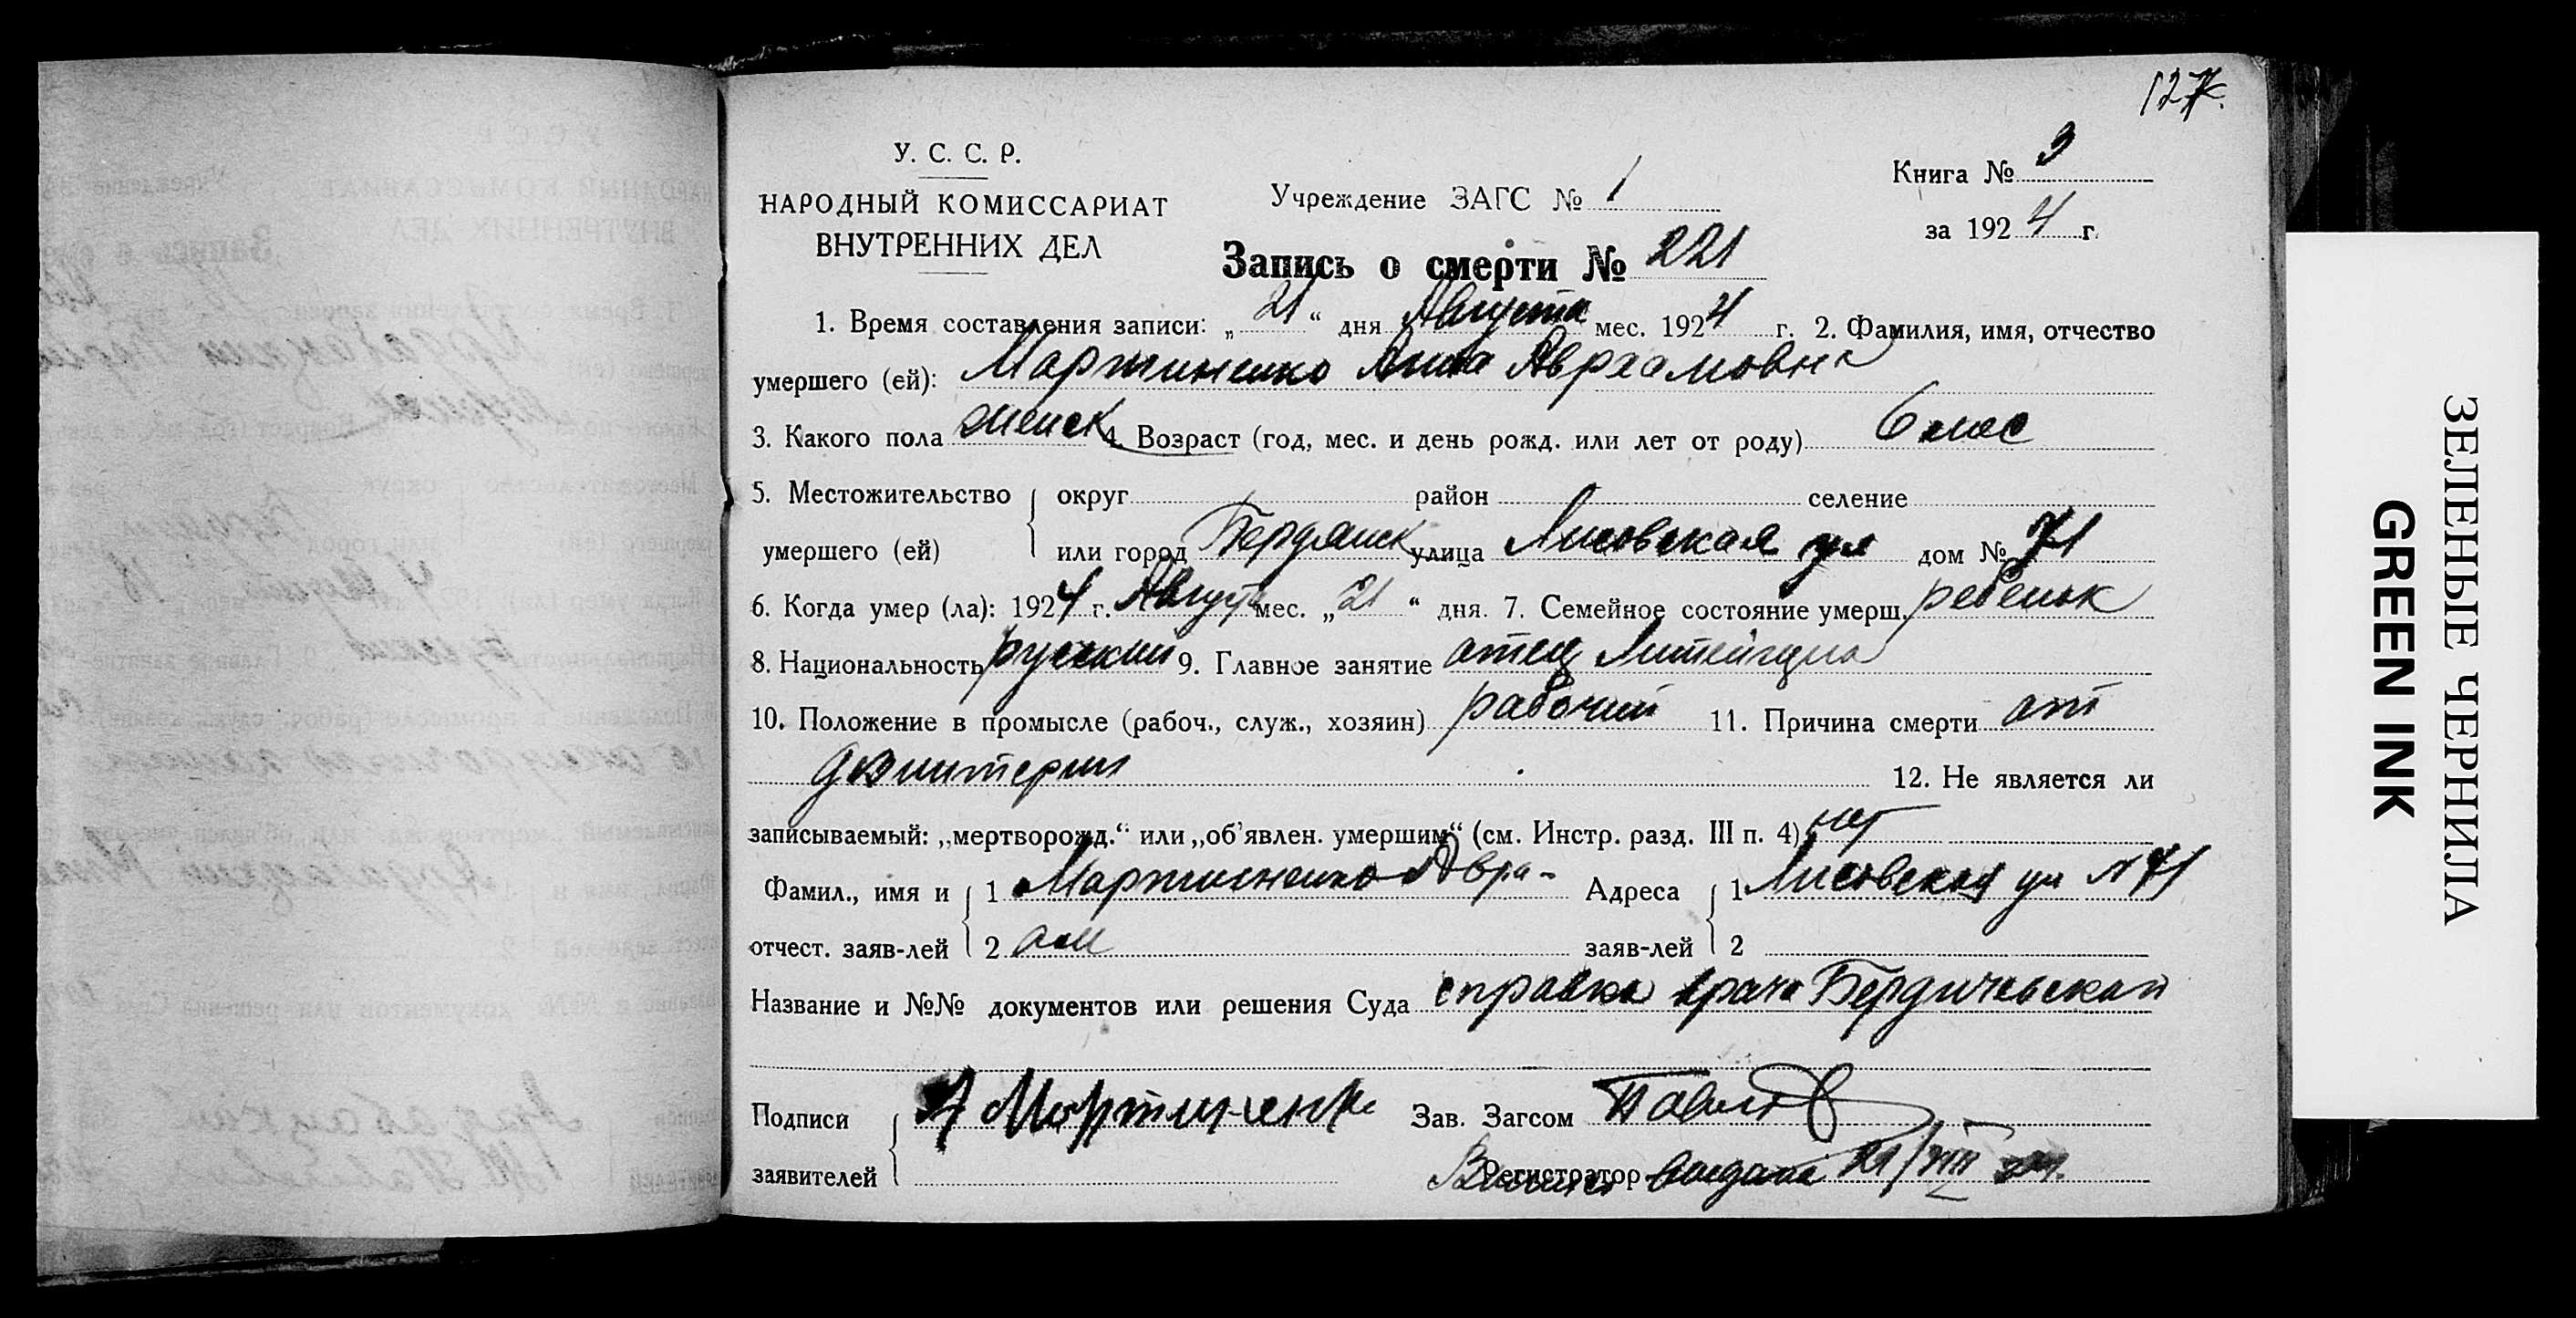 127
У. С. С. Р.
НАРОДНЫЙ КОМИССАРИАТ
ВНУТРЕННИХ ДЕЛ
Учреждение ЗАГС № 1
Книга № 3
за 1924 г.
Запись о смерти № 221
1. Время составления записи: „21“ дня Августа мес. 1924 г. 2. Фамилия, имя, отчество
умершего (ей): Мартиненко Анна Авраамовна
3. Какого пола женск 4. Возраст (год, мес. и день рожд. или лет от роду) 6 мес
5. Местожительство умершего (ей) { округ район селение
или город Бердянск улица Лисовская ул дом № 71
6. Когда умер (ла): 1924 г. Август мес. „21“ дня. 7. Семейное состояние умерш. ребенок
8. Национальность русский 9. Главное занятие отец Литейщик
10. Положение в промысле (рабоч., служ., хозяин) рабочий 11. Причина смерти от
дизинтерии 12. Не является ли
записываемый: „мертворожд.“ или „об’явлен. умершим“ (см. Инстр. разд. III п. 4) нет
Фамил., имя и { 1 Мартиненко Авра- Адреса { 1 Лисовская ул № 71
отчест. заяв-лей { 2 ам заяв-лей { 2
Название и №№ документов или решения Суда справка врача Бердичевской
Подписи { А Мартиненк Зав. Загсом Павлов
заявителей { Регистратор
Выписка выдана 21/VIII 24.
ЗЕЛЕНЫЕ ЧЕРНИЛА
GREEN INK